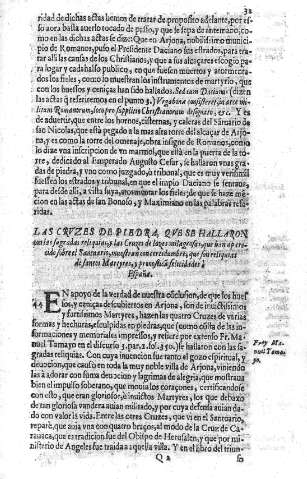 32
ridad de dichas actas hemos de tratar de proposito adelante, por es-
so aora basta auerlo tocado de passo, y que se sepa de entrerato, co-
mo en las dichas actas se dize: Que en Arjona, nobilissimo municip
de Romanos, puso el Presidente Daciano sus estrados, para tra-
tar alli las causas de los Christianos, y que a sus alcaçares escogio pa-
ra lugar y cadahalso publico, en que fuessen muertos y atormenta-
dos los fieles, como lo muestran los instrumentos de martyrio, que
con los huessos y ceniças han sido hallados. Sed cum Daciano (dizen
las actas (q referiremos en el punto 3.) Vrgabona consisteret, in arce mu-
nicipii Romanorum, loco pro supplicijs Christianorum designato, &c. Y es
de aduertir, que entre los hornos, cisternas, y caleras del Santuario de
san Nicolas, que està pegado a la mas alta torre del alcaçar de Arjo-
na, y es como la torre del omenaje, obra insigne de Romanos, como
lo dize vna inscripcion de vn marmol, que està en la puerta de la to-
rre, dedicado al Emperador Augusto Cesar, se hallaron vnas gra-
das de piedra, y vno como juzgado, ò tribunal, que es muy verisimil
fuessen los estrados y tribunal, en que el impio Daciano se sentaua,
para desde alli, a vista suya, atormentar los fieles: de que se haze mé-
cion en las actas de san Bonoso, y Maximiano en las palabras refe-
ridas.
LAS CRVZES DE PIEDRA, QVE SE HALLARON
con las sagradas reliquias, y las Cruzes de luzes milagrosas, que han apareci-
do sobre el Santuario, muestran con certidumbre, que son reliquias
de santos Martyres, y pronostica felicidades à
España.
45 EN apoyo de la verdad de nuestra cōclusion, de que los hues-
sos, y ceniças descubiertos en Arjona, son de inuictissimos
y fortissimos Martyres, hazen las quatro Cruzes de varias
formas y hechuras, esculpidas en piedras, que (como cōsta de las in-
formaciones y memoriales impressos, y refiere por extenso Fr. Ma-
nuel Tamayo en el discurso 3. part. 2. fol. 350.) se hallaron con las sa-
gradas reliquias. Con cuya inuencion fue tanto el gozo espiritual, y
deuocion, que causò en toda la muy noble villa de Arjona, viniendo
las à adorar con suma deuocion y lagrimas de alegria, que mostraua
bien el impulso soberano, que mouia los coraçones, certificandose
con esto, que eran gloriosos, è inuictos Martyres, los que debaxo
de tan gloriosa vandera auian militado, y por cuya defensa auian da-
do con valor la vida. Entre las otras Cruzes, que vi en el Santuario,
reparè, que auia vna con quatro braços, al modo de la Cruz de Ca-
rauaca, que es tradicion fue del Obispo de Herusalen, y que por mi-
nisterio de Angeles fue traida a aquella villa. Y en el libro del triun-
Fray Ma-
nuel Tama-
yo.
Q 2
fo